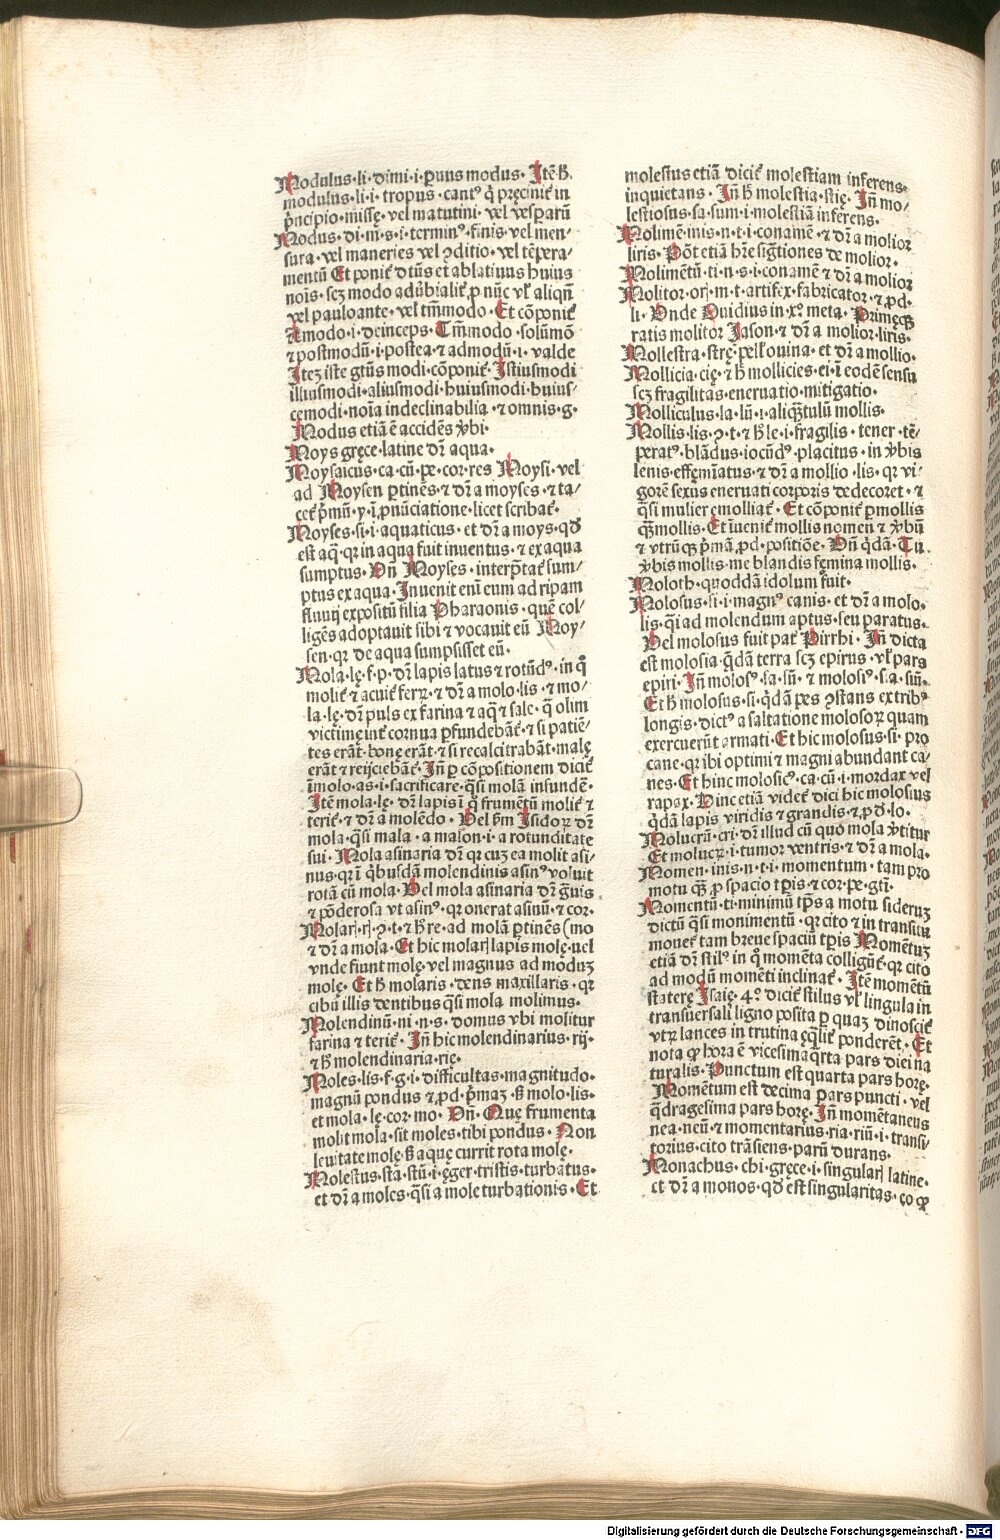 Modulus·li·dimi·i·ꝑuus modus· Itē h̄.
modulus·li·i·tropus·cantꝰ q̄ pręcinit̄ in
p̄ncipio·missę·vel matutini·vel vesꝑarū
Modus·di·m̄·s·i·terminꝰ·finis·vel men⸗
sura·vel maneries vel ↄditio·vel tēpera⸗
mentū Et ponit̄ dtūs et ablatiuus huius
nois·scꝫ modo adūbialit̄·ꝓ nūc vl̄ aliqn̄
vel pauloante·vel tm̄modo·Et cōponit̄
Amodo·i·deinceps·Tm̄modo·solūmō
⁊ postmodū·i·postea·⁊ admodū·i·valde
Iteꝫ iste gtūs modi·cōponit̄·Istiusmodi
illiusmodi·aliusmodi·huiusmodi·huius⸗
cemodi·noīa indeclinabilia·⁊ omnis·g·
Modus etiā ē accidēs v̄bi·
Moys gręce·latine dr̄ aqua·
Moysaicus·ca·cū·pe·cor·res Moysi·vel
ad Moysen ꝑtinēs·⁊ dr̄ a moyses·⁊ ta⸗
cet̄ p̄mū·y·ī ꝓnūciatione·licet scribat̄·
Moyses·si·i·aquaticus·et dr̄ a moys·qd̄
est aq̄·qꝛ in aqua fuit inuentus·⁊ ex aqua
sumptus·Vn̄ Moyses·interp̄tat̄ sum⸗
ptus ex aqua·Inuenit enī eum ad ripam
fluuij expositū filia Pharaonis·quē col⸗
ligēs adoptauit sibi ⁊ vocauit eū Moy⸗
sen·qꝛ de aqua sumpsisset eū·
Mola·lę·f·p·dr̄ lapis latus ⁊ rotūdꝰ·in q̊
molit̄ ⁊ acuit̄ ferꝝ·⁊ dr̄ a molo·lis·⁊ mo⸗
la·lę·dr̄ puls ex farina ⁊ aq̄ ⁊ sale·q̄ olim
victimę int̄ cornua ꝑfundebāt̄·⁊ si patiē⸗
tes erāt·bonę erāt·⁊ si recalcitrabāt·malę
erāt ⁊ reijciebāt̄·In̄ ꝑ cōpositionem dicit̄
īmolo·as·i·sacrificare·q̄si molā infundē·
Itē mola·lę·dr̄ lapis ī q̊ frumētū molit̄ ⁊
terit̄·⁊ dr̄ a molēdo·Vel ẜm Isidoꝝ dr̄
mola·q̄si mala·a malon·i·a rotunditate
sui·Mola asinaria dr̄ qꝛ cuꝫ ea molit asi⸗
nus·qꝛ ī q̇busdā molendinis asinꝰ voluit
rotā cū mola·Vel mola asinaria dr̄ g̃uis
⁊ pōderosa vt asinꝰ·qꝛ onerat asinū·⁊ cor·
Molarꝭ·rꝭ·ↄ·t·⁊ h̄ re·ad molā ꝑtinēs (mo
⁊ dr̄ a mola·Et hic molarꝭ lapis molę·uel
vnde fiunt molę·vel magnus ad moduꝫ
molę·Et h̄ molaris·dens maxillaris·qꝛ
cibū illis dentibus q̄si mola molimus·
Molendinū·ni·n·s·domus vbi molitur
farina ⁊ terit̄·In̄ hic molendinarius·rij·
⁊ h̄ molendinaria·rię·
Moles·lis·f·g·i·difficultas·magnitudo·
magnū pondus ⁊ ꝓd·p̄maꝫ·ẜ molo·lis·
et mola·lę·cor·mo·Vn̄·Quę frumenta
molit mola·sit moles·tibi pondus·Non
leuitate molę·ẜ aquę currit rota molę·
Molestus·sta·stū·i·ęger·tristis·turbatus·
et dr̄ a moles·q̄si a mole turbationis·Et
molestus etiā dicit̄ molestiam inferens·
inquietans·In̄ h̄ molestia·stię·In̄ mo⸗
lestiosus·sa·sum·i·molestiā inferens·
Molimē·inis·n·t·i·conamē·⁊ dr̄ a molior
liris·Pōt etiā hr̄e sig̃tiones de molior·
Molimētū·ti·n·s·i·conamē ⁊ dr̄ a molior
Molitor·orꝭ·m·t·artifex·fabricator·⁊ ꝓd·
li·Vnde Ouidius in·xꝰ meta·Primęqꝫ
ratis molitor Jason·⁊ dr̄ a molior·liris·
Mollestra·strę·pell̄ ouina·et dr̄ a mollio·
Mollicia·cię·⁊ h̄ mollicies·ei·ī eodē sensu
scꝫ fragilitas·eneruatio·mitigatio·
Molliculus·la·lū·i·aliq̄ꝫtulū mollis·
Mollis·lis·ↄ·t·⁊ h̄ le·i·fragilis·tener·tē⸗
peratꝰ·blādus·iocūdꝰ·placitus·in v̄bis
lenis·effęmīatus·⁊ dr̄ a mollio·lis·qꝛ vi⸗
gorē sexus eneruati corporis dedecoret·⁊
q̄si mulier emolliat̄·Et cōponit̄ p̄mollis
q̄ꝫmollis·Et īuenit̄ mollis nomen ⁊ v̄bū
⁊ vtrūqꝫ p̄mā ꝓd·positiōe·Vn̄ q̇dā·Tu
v̄bis mollis·me blandis fęmina mollis·
Moloth·quoddā idolum fuit·
Molosus·si·i·magnꝰ canis·et dr̄ a molo·
lis·q̄i ad molendum aptus·seu paratus·
Vel molosus fuit pat̄ Pirrhi·In̄ dicta
est molosia·q̄dā terra scꝫ epirus·vl̄ pars
epiri·In̄ molosꝰ·sa·sū·⁊ molosiꝰ·s·a·siū·
Et h̄ molosus·si·q̇dā pes ↄstans ex tribꝰ
longis·dictꝰ a saltatione molosoꝝ quam
exercuerūt armati·Et hic molosus·si·pro
cane·qꝛ ibi optimi ⁊ magni abundant ca⸗
nes·Et hinc molosicꝰ·ca·cū·i·mordax vel
rapax·Hinc etiā videt̄ dici hic molosius
q̇dā lapis viridis ⁊ grandis·⁊ ꝓd·lo·
Molucrū·cri·dr̄ illud cū quo mola v̄titur
Et molucꝝ·i·tumor ventris·⁊ dr̄ a mola·
Momen·inis·n·t·i·momentum·tam pro
motu q̄ꝫ ꝓ spacio tꝑis·⁊ cor·pe·gti·
Momentū·ti·minimū tp̄s a motu sideruꝫ
dictū q̄si monimentū·qꝛ cito ⁊ in transitu
mouet̄ tam breue spaciū tꝑis Momētuꝫ
etiā dr̄ stilꝰ in q̊ momēta colligūt̄·qꝛ cito
ad modū momēti inclinat̄·Itē momētū
staterę Isaię·4ꝰ·dicit̄ stilus vl̄ lingula in
transuersali ligno posita ꝑ quaꝫ dinoscit̄
vtꝝ lances in trutina ęq̄lit̄ ponderēt·Et
nota ꝙ hora ē vicesimaq̄rta pars diei na
turalis·Punctum est quarta pars horę·
Momētum est decima pars puncti·vel
q̄dragesima pars horę·In̄ momētaneus
nea·neū·⁊ momentarius·ria·riū·i·transi
torius·cito trāsiens·parū durans·
Monachus·chi·gręce·i·singularꝭ latine·
et dr̄ a monos·qd̄ est singularitas·eo ꝙ
Digitalisierung gefördert durch die Deutsche Forschungsgemeinschaft - DFG